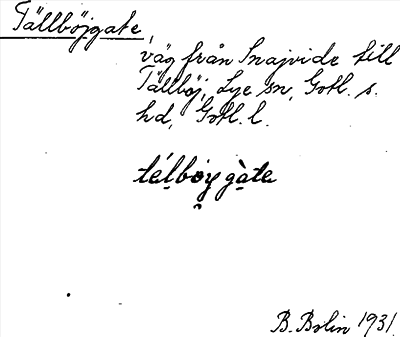 Tällböjgate,
väg från Snajvide till
Tällböj, Lye sn, Gotl. s.
hd, Gotl. l.
tálboy gàta
B. Bolin 1931.